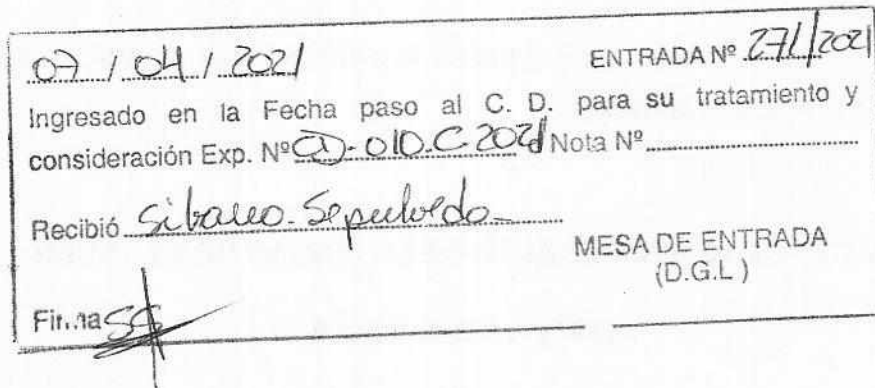 07 / 04 / 2021 ENTRADA Nº 271/2021
Ingresado en la Fecha paso al C. D. para su tratamiento y
consideración Exp. Nº CD-010-C 2021 Nota Nº
Recibió Sepulveda
MESA DE ENTRADA
(D.G.L)
Firma